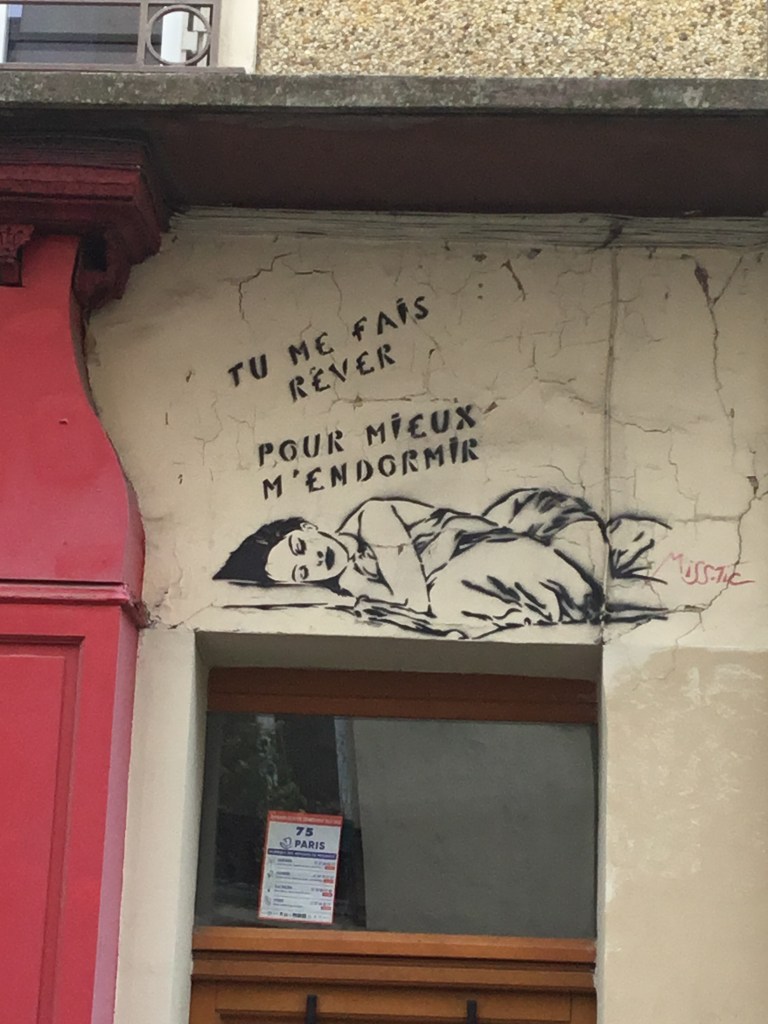 TU ME FAIS
RÊVER
POUR MIEUX
M'ENDORMIR
MISS.TIC
75
PARIS